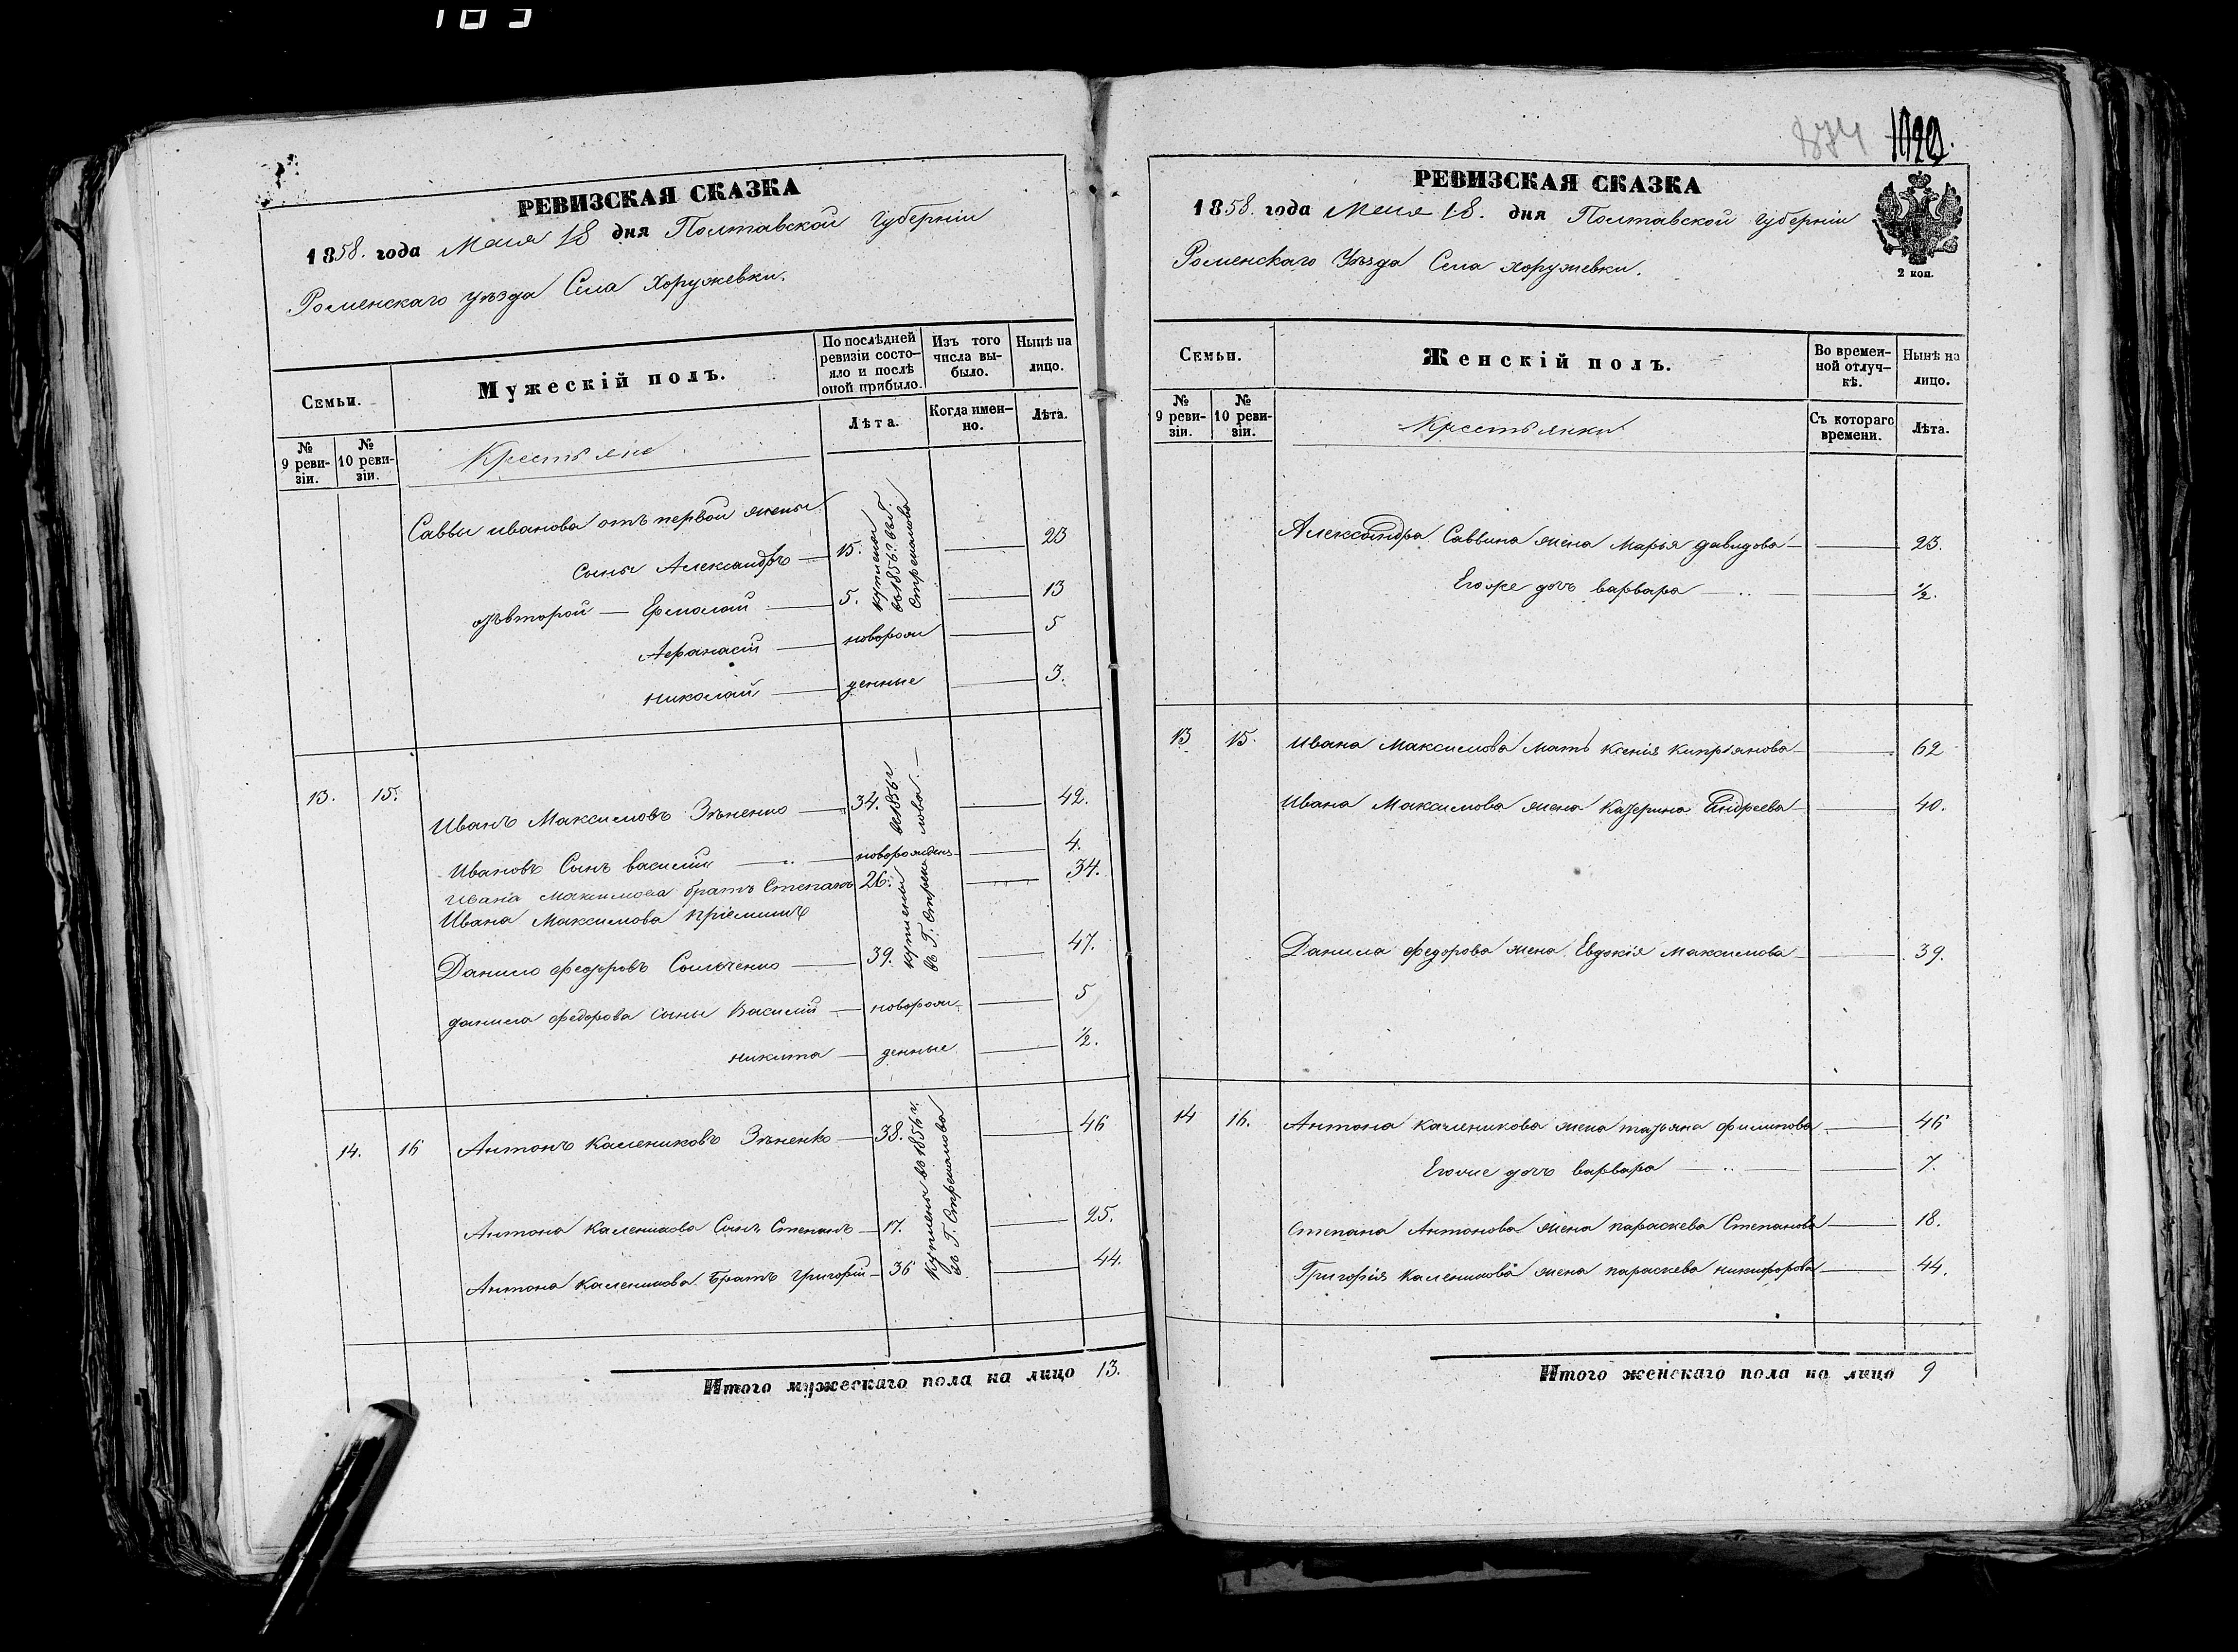 103
РЕВИЗСКАЯ СКАЗКА
1858. года Маия 18 дня Полтавской губерніи
Роменскаго уѣзда Села Хоружевки.
Семьи.
Мужескій полъ.
По послѣдней ревизіи состояло и послѣ оной прибыло.
Изъ того числа выбыло.
Нынѣ на лицо.
№ 9 ревизіи.
№ 10 ревизіи.
Крестьяне
Лѣта.
Когда именно.
Лѣта.
Саввы иванова отъ первой жены
сыны Александръ — 15. — 23
отъ второй — Ермолай — 5. — 13
Афанасій — новорож — 5
николай — денные — 3.
куплены
въ 1856 г.
13. 15. Иванъ Максимовъ Зѣненко — 34. — 42.
Ивановъ Сынъ василій — новорожденъ — 4.
Ивана Максимова братъ Степанъ 26. — 34.
Ивана Максимова пріемышъ
Данило федоровъ — 39. — 47.
данила федорова сыны Василій — новорож — 5
никита — денные — 1/2.
куплены въ 1856 г.
14. 16 Антонъ Калениковъ Зѣненко — 38. — 46
Антона каленикова Сынъ Степанъ — 17. — 25.
Антона каленикова братъ григорій — 36 — 44.
куплены въ 1856 г.
Итого мужескаго пола на лицо 13.
874
РЕВИЗСКАЯ СКАЗКА
1858. года Маия 18. дня Полтавской губерніи
Роменскаго Уѣзда Села хоружевки.
2 коп.
Семьи.
Женскій полъ.
Во временной отлучкѣ.
Нынѣ на лицо.
№ 9 ревизіи.
№ 10 ревизіи.
Крестьянки
Съ котораго времени.
Лѣта.
Александра Саввина жена Марья давидова — 23.
Егоже дочь варвара — 1/2.
13 15. Ивана Максимова мать Ксенія Кипріянова — 62
Ивана Максимова жена Катерина Андреева — 40.
Данила федорова жена Евдокія Максимова — 39.
14 16. Антона Каленикова жена татьяна филипова — 46
Егоже дочь варвара — 7.
степана Антонова жена параскева Степанова — 18.
Григорія Каленикова жена параскева никифорова — 44.
Итого женскаго пола на лицо 9